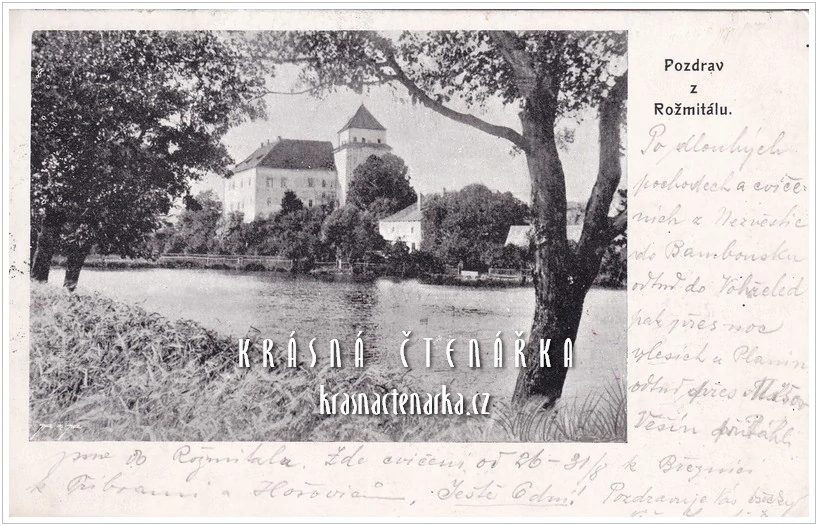 Pozdrav
z
Rožmitálu.
Po dlouhých
pochodech a cviče-
ních z Nezvěstic
do Bambousku
odtud do
pak přes noc
v lesích u Planin
odtud přes
Věšín
jsme do Rožmitálu. Zde cvičení od 26-31/8 k Březnici
k Příbrami a Hořovicům, Ještě 6 dní! Pozdravuje Vás
KRÁSNÁ ČTENÁŘKA
krasnactenarka.cz